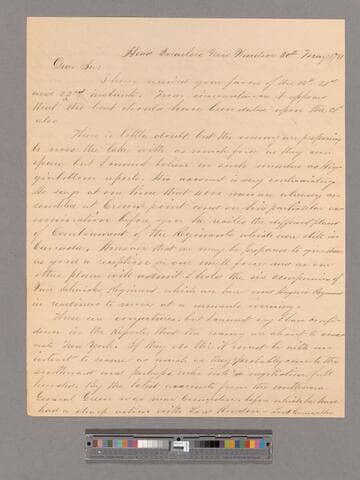 Head Quarters New Windsor 28th May 1781
Dear Sir:
I have received your favors of the 21st
and 22nd instants. From circumstances I suppose
that the last should have been dated upon the 23
also.
There is little doubt but the enemy are preparing
to cross the Lake with as much force as they can
spare but I cannot believe in such numbers as
reports. His account is very contradictory
He says at one time that 3000 men are already as
sembled at Crown point and in his particular ex
amination before you he recites the different places
of Cantonment of the Regiments which are still in
Canada. However that we may be prepared to give them
as good a reception as our small force and our
other plans will admit I hold the six companies of
Van Schaick's Regiment which are here and Regiment
in readiness to move at a moments warning.
There are conjectures but I cannot say I have confi
dence in the Reports that the enemy are about to evacu
ate New York. If they do it must be with an
intent to secure as much as they probably can to the
southward and perhaps
By the latest accounts from the southward
General Green was near Camden before which he
had a sharp action with Lord Rawdon and